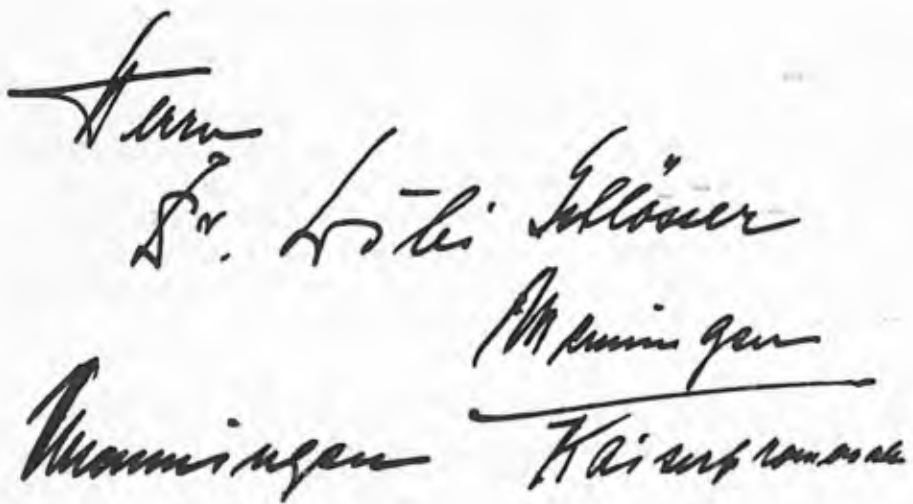 Herrn
Dr. Schlösser
Memmingen
Memmingen Kaiserpromenade